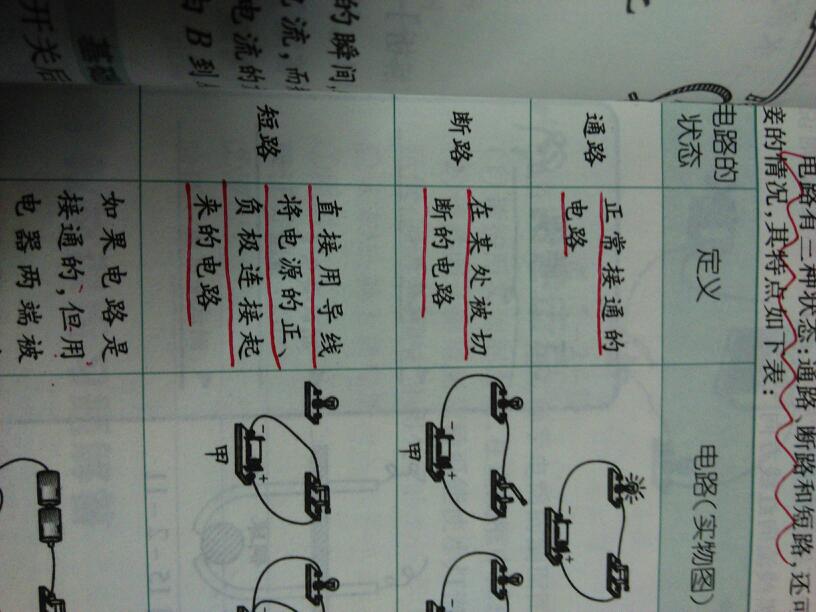 的瞬间,
电流,而
电流的
为B到
基础
开关后
电路有三种状态:通路、断路和短路,还可
接的情况,其特点如下表:
电路的
状态
定义
电路(实物图)
通路
正常接通的
电路
断路
在某处被切
断的电路
甲
短路
直接用导线
将电源的正、
负极连接起
来的电路
甲
如果电路是
接通的,但用
电器两端被